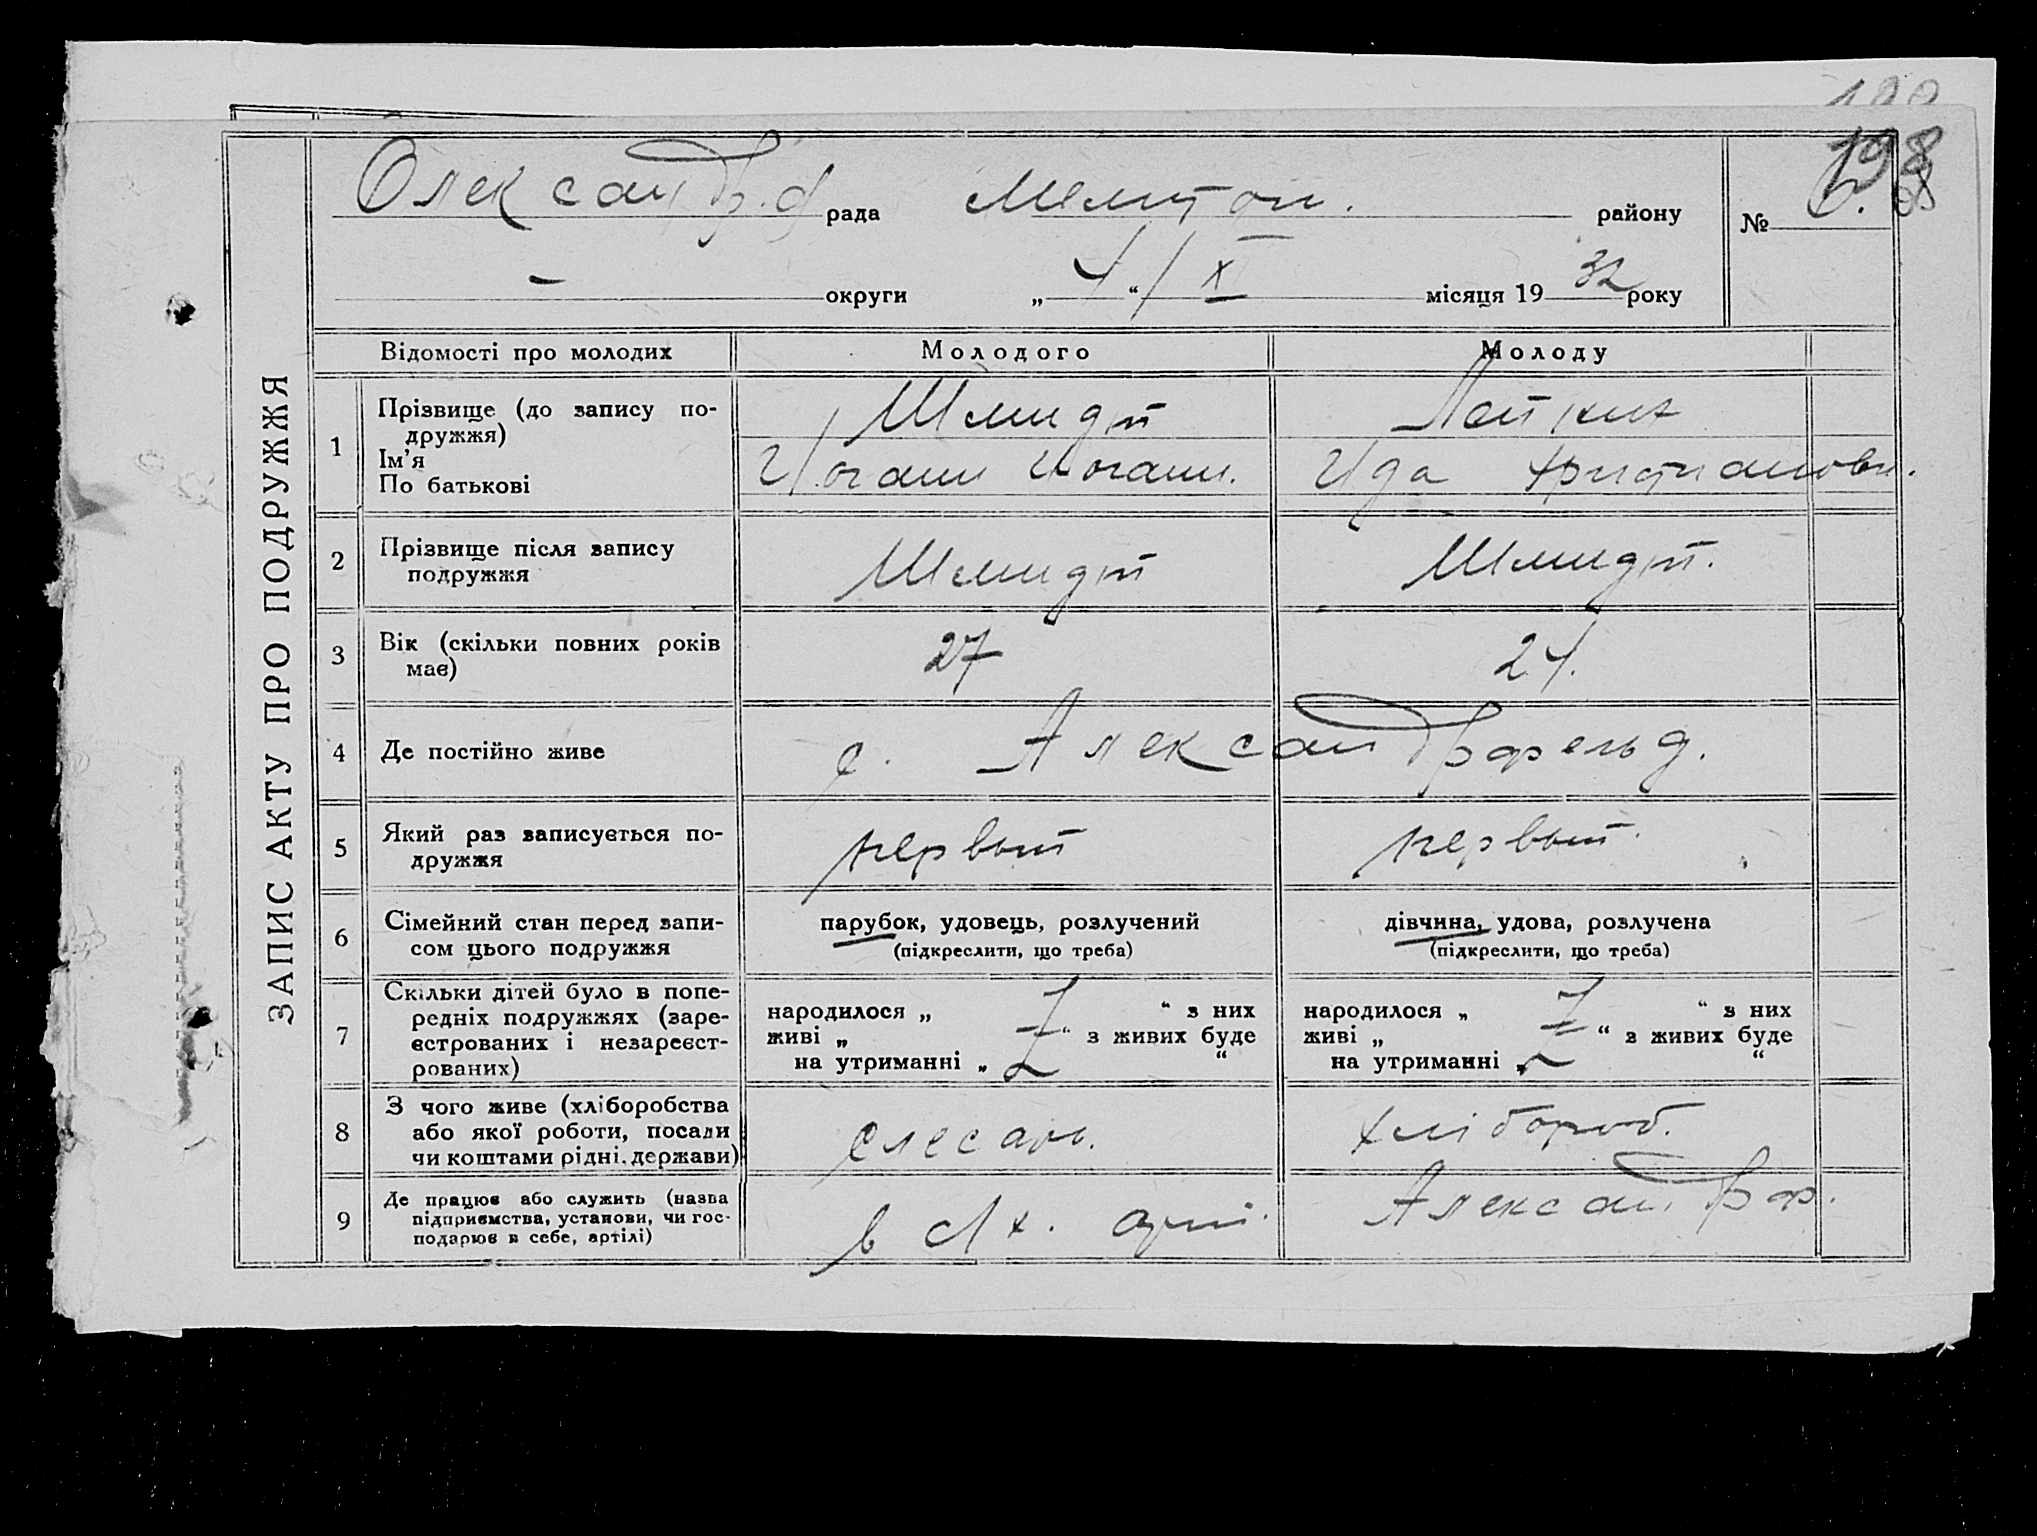 ЗАПИС АКТУ ПРО ПОДРУЖЖЯ
198
Олександр.ф рада Мелитоп. району № 6.
– округи „4“ / XI місяця 1932 року
Відомості про молодих Молодого Молоду
1 Прізвище (до запису по-
дружжя)
Ім’я
По батькові
Шмидт
Иоганн Иоганн.
Ида Христиановн.
2 Прізвище після запису
подружжя
Шмидт
Шмидт.
3 Вік (скільки повних років
має)
27
24.
4 Де постійно живе
с. Александрфельд.
5 Який раз записується по-
дружжя
первый
первый.
6 Сімейний стан перед запи-
сом цього подружжя
парубок, удовець, розлучений
(підкреслити, що треба)
дівчина, удова, розлучена
(підкреслити, що треба)
7 Скільки дітей було в попе-
редніх подружжях (заре-
єстрованих і незареєст-
рованих)
народилося „ “ з них
живі „ “ з живих буде
на утриманні „ “
народилося „ “ з них
живі „ “ з живих буде
на утриманні „ “
8 З чого живе (хліборобства
або якої роботи, посади
чи коштами рідні. держави)
слесарь.
хлібороб.
9 Де працює або служить (назва
підприємства, установи, чи гос-
подарює в себе, артілі)
в с/х. арт.
Александрф.